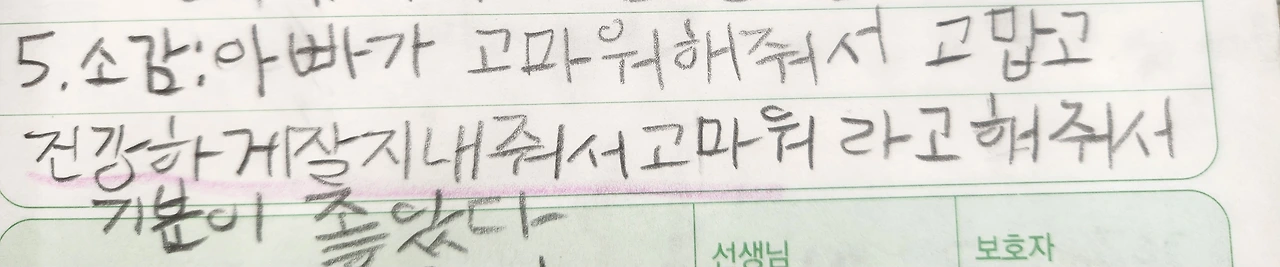 5. 소감: 아빠가 고마워해줘서 고맙고
건강하게잘지내줘서고마워 라고해줘서
기분이 좋았다
선생님 보호자